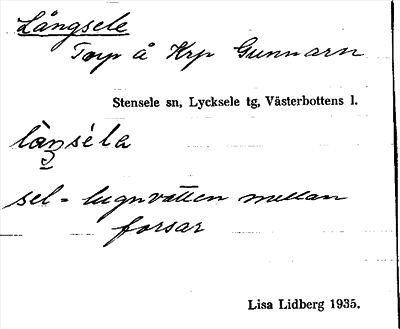 Långsele
Torp å Krp Gunnarn
Stensele sn, Lycksele tg, Västerbottens l.
làŋséla
sel = lugnvatten mellan
forsar
Lisa Lidberg 1935.